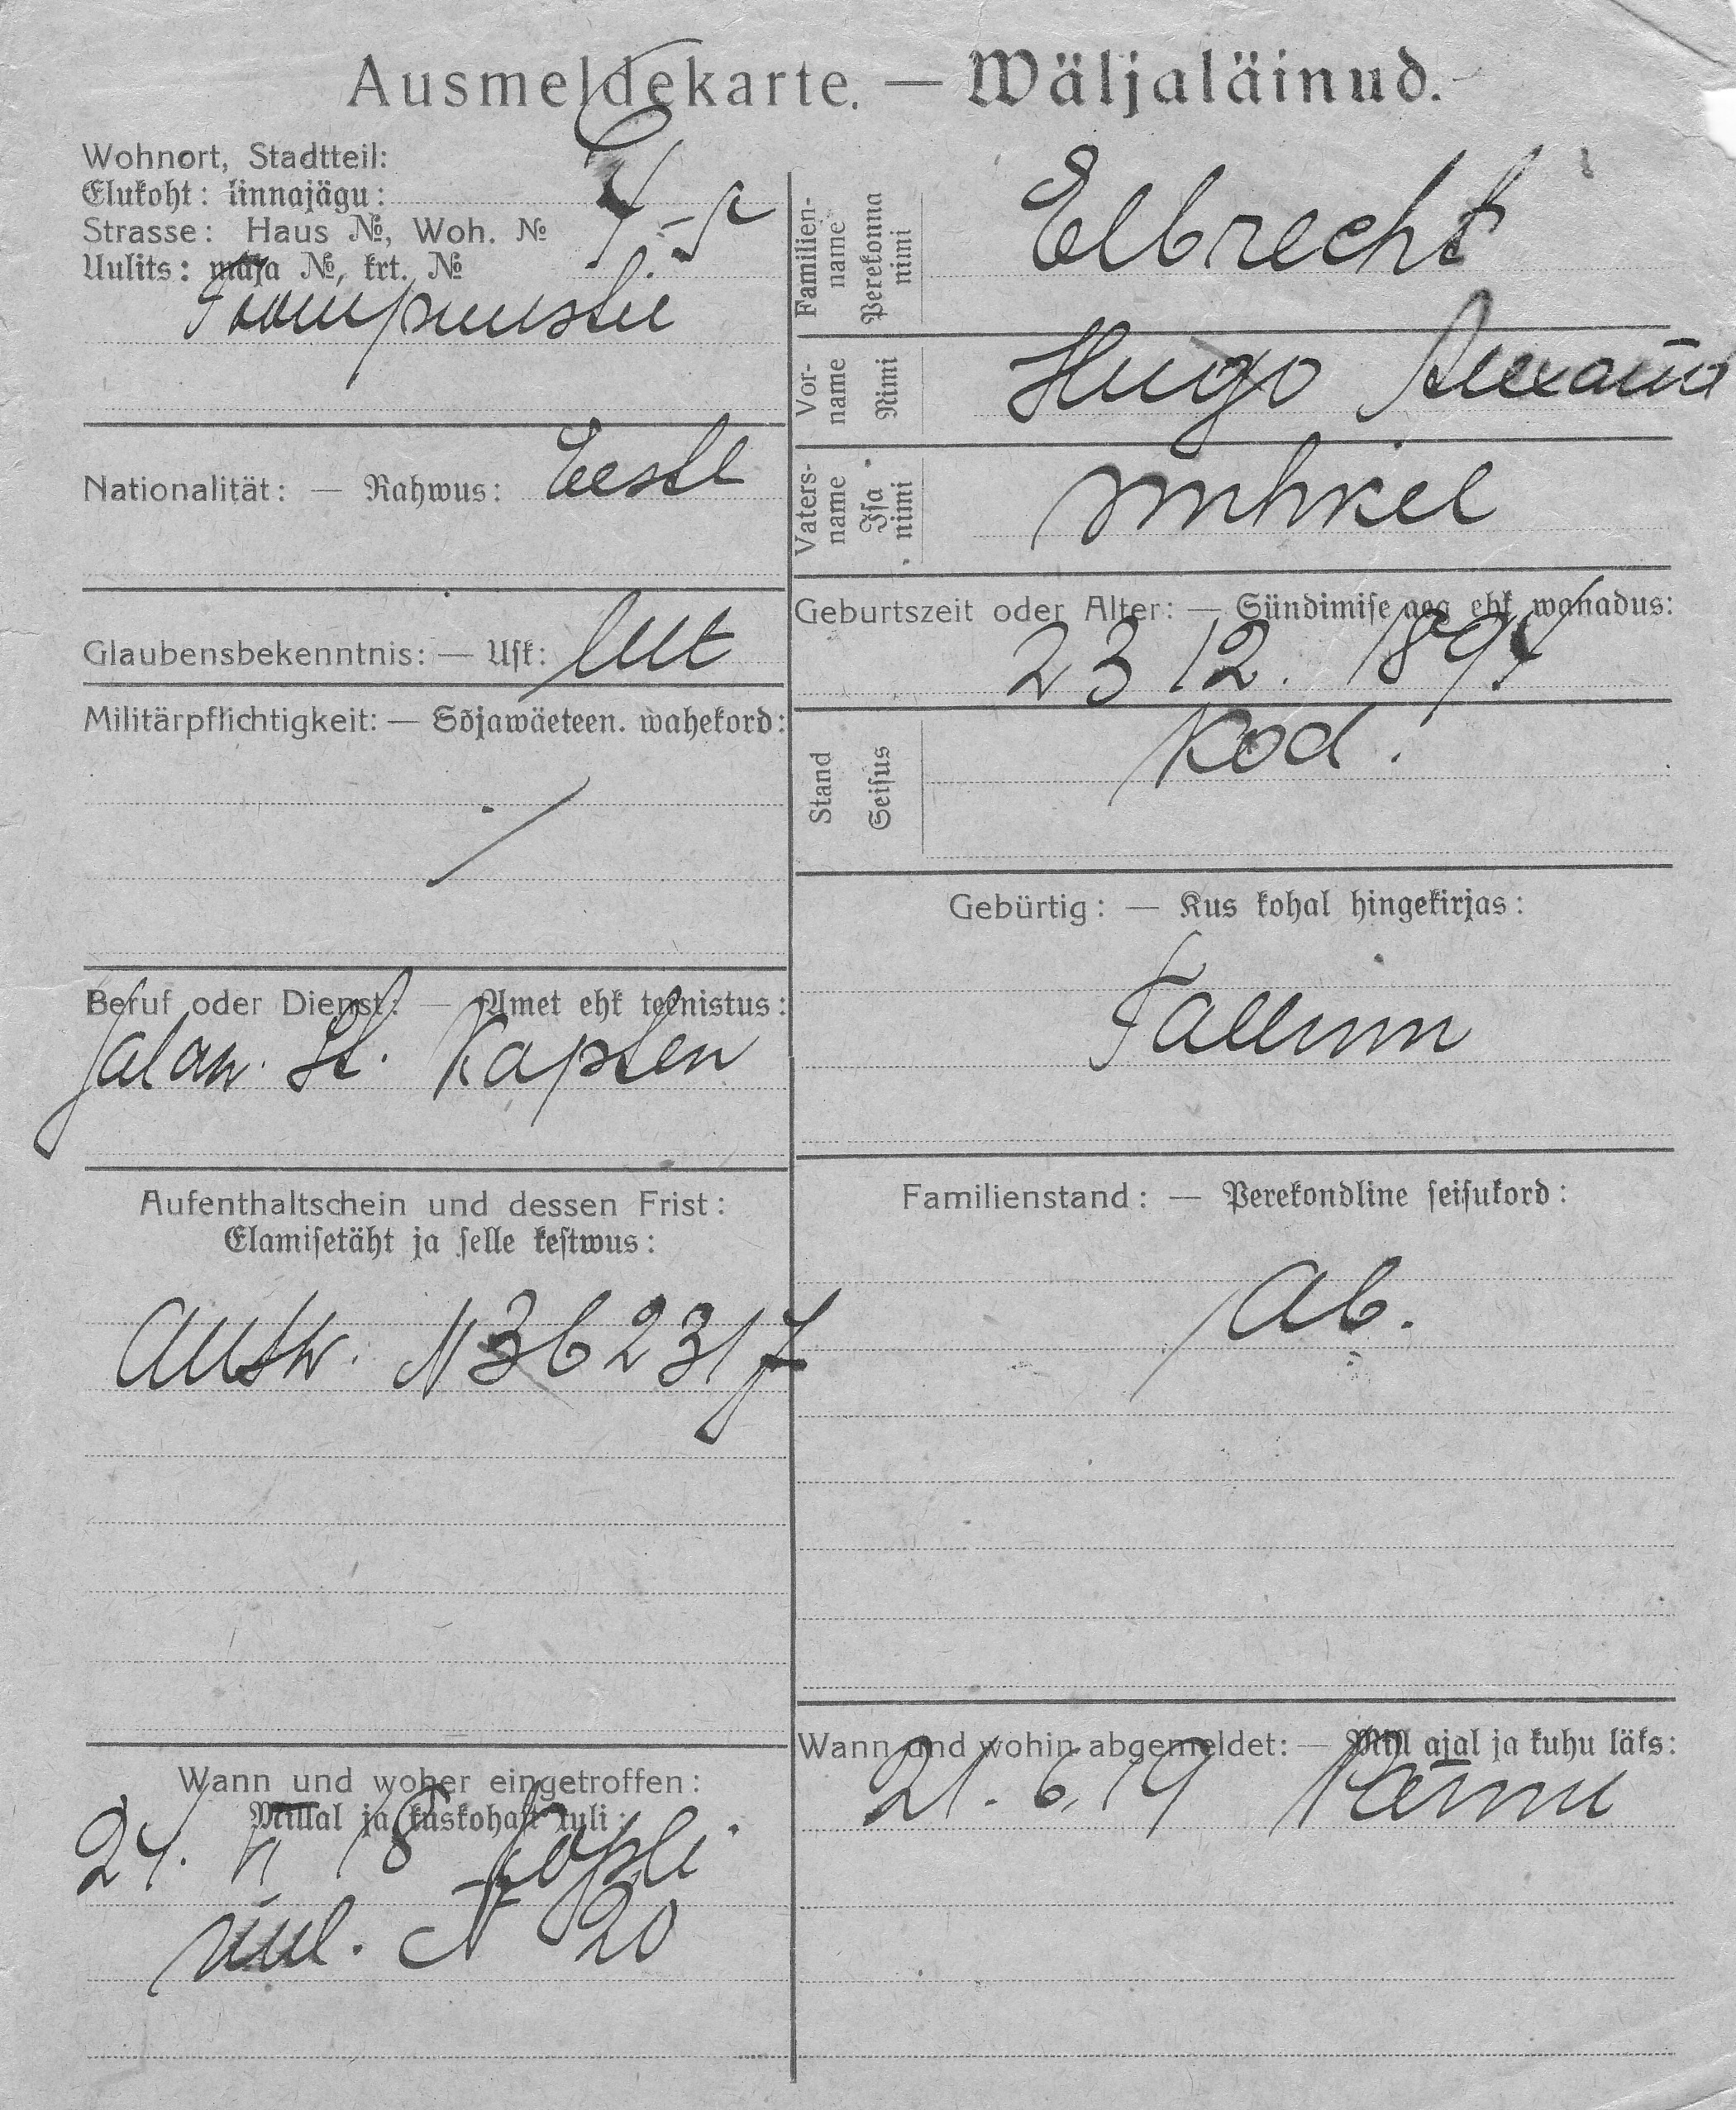 Ausmeldekarte. — Wäljaläinud.
Wohnort, Stadtteil:
Elukoht: linnajägu:
Strasse: Haus №, Woh. №
Uulits: maja №, krt. №
4-5
Nationalität: — Rahwus: Eesti
Glaubensbekenntnis: — Usk: lut
Militärpflichtigkeit: — Sõjawäeteen. wahekord:
Beruf oder Dienst: — Amet ehk teenistus:
Jalaw. St. Kapten
Aufenthaltschein und dessen Frist:
Elamisetäht ja selle kestwus:
Ausw. N 362317
Wann und woher eingetroffen:
Millal ja kuskohast tuli:
18 Kopli
N 20
Familienname
Perekonna nimi
Elbrecht
Vorname
Nimi
Hugo Alexand
Vatersname
Isa nimi
Mihkel
Geburtszeit oder Alter: — Sündimise aeg ehk wanadus:
23 12. 1894
Stand
Seisus
Kod.
Gebürtig: — Kus kohal hingekirjas:
Tallinn
Familienstand: — Perekondline seisukord:
Ab.
Wann und wohin abgemeldet: — Mill ajal ja kuhu läks:
21. 6. 19 Pärnu